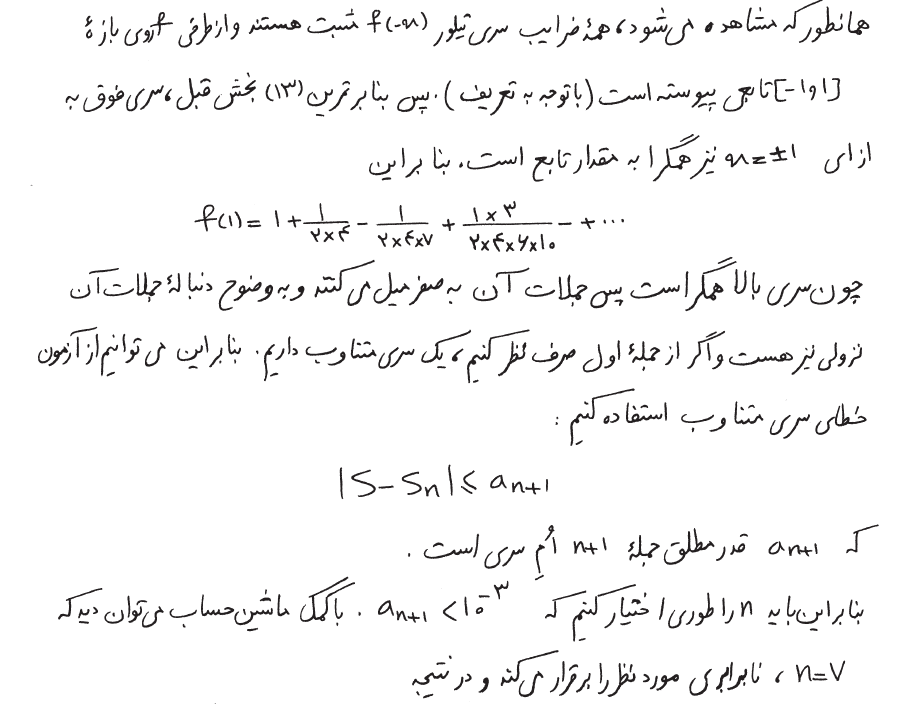 همانطور که مشاهده می‌شود، همهٔ ضرایب سری تیلور f(-x) مثبت هستند و از طرفی f روی بازهٔ
[-۱ و ۱] تابعی پیوسته است (با توجه به تعریف). پس بنابر تمرین (۱۳) بخش قبل، سری فوق به
ازای x=±۱ نیز همگرا به مقدار تابع است. بنابراین
f(۱) = ۱ + ۱/(۲×۴) - ۱/(۲×۴×۷) + (۱×۳)/(۲×۴×۶×۱۰) - + ...
چون سری بالا همگراست پس جملات آن به صفر میل می‌کنند و به وضوح دنبالهٔ جملات آن
نزولی نیز هست و اگر از جملهٔ اول صرف نظر کنیم، یک سری متناوب داریم. بنابراین می‌توانیم از آزمون
خطای سری متناوب استفاده کنیم:
|S - Sn| ≤ an+1
که an+1 قدر مطلق جملهٔ n+1 اُم سری است.
بنابراین باید n را طوری اختیار کنیم که an+1 < ۱۰^-۳. با کمک ماشین حساب می‌توان دید که
n=۷، نابرابری مورد نظر را برقرار می‌کند و در نتیجه